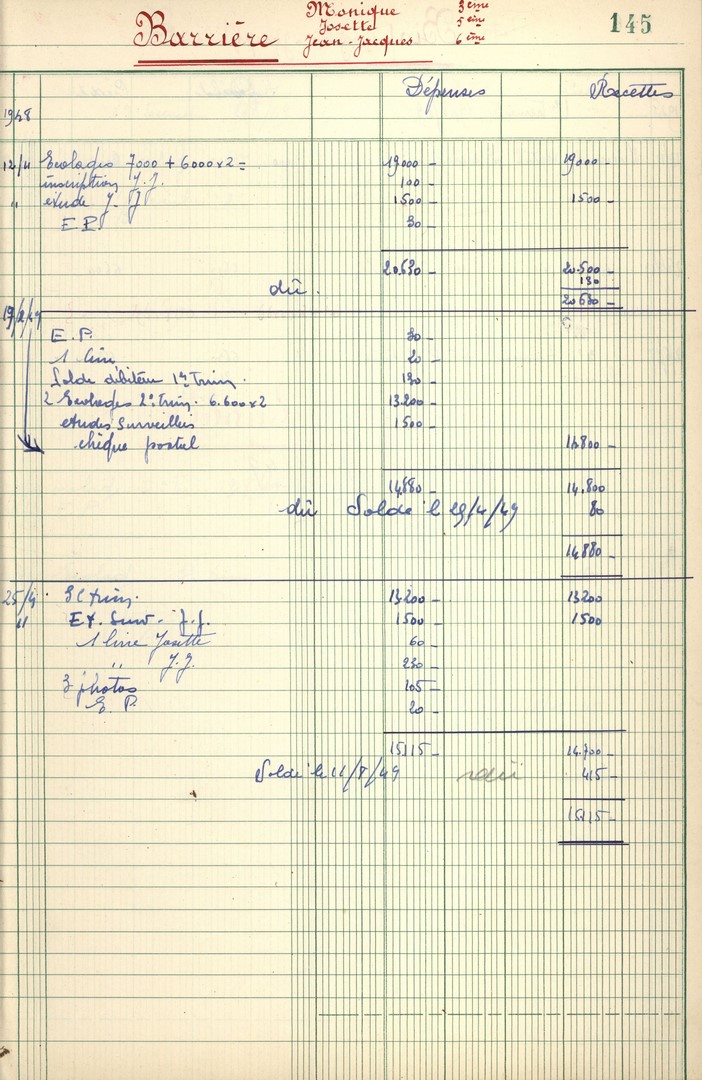 Barrière Monique 3ème 145
Josette 5ème
Jean-Jacques 6ème
Dépenses Recettes
1948
12/11 Ecolages 7000 + 6000x2 = 19000 - 19000 -
inscription J.J. 100 -
" étude J. J 1500 - 1500 -
E.P. 30 -
20.630 - 20.500
dû. 130
20630 -
19/2/49
E.P. 30 -
1 livre 20 -
Solde débiteur 1er Trim. 130 -
2 Ecolages 2e Trim. 6.600x2 13.200 -
etudes Surveillées 1500 -
chèque postal 14.800 -
14.880 - 14.800
dû Soldé le 29/4/49 80
14.880 -
25/4. 3e trim. 13.200 - 13200
" Et. Surv. J.J. 1500 - 1500
1 livre Josette 60 -
" J.J. 230 -
3 photos 105 -
E.P. 20 -
15115 - 14.700 -
Soldé le 11/8/49 dû 415 -
15115 -